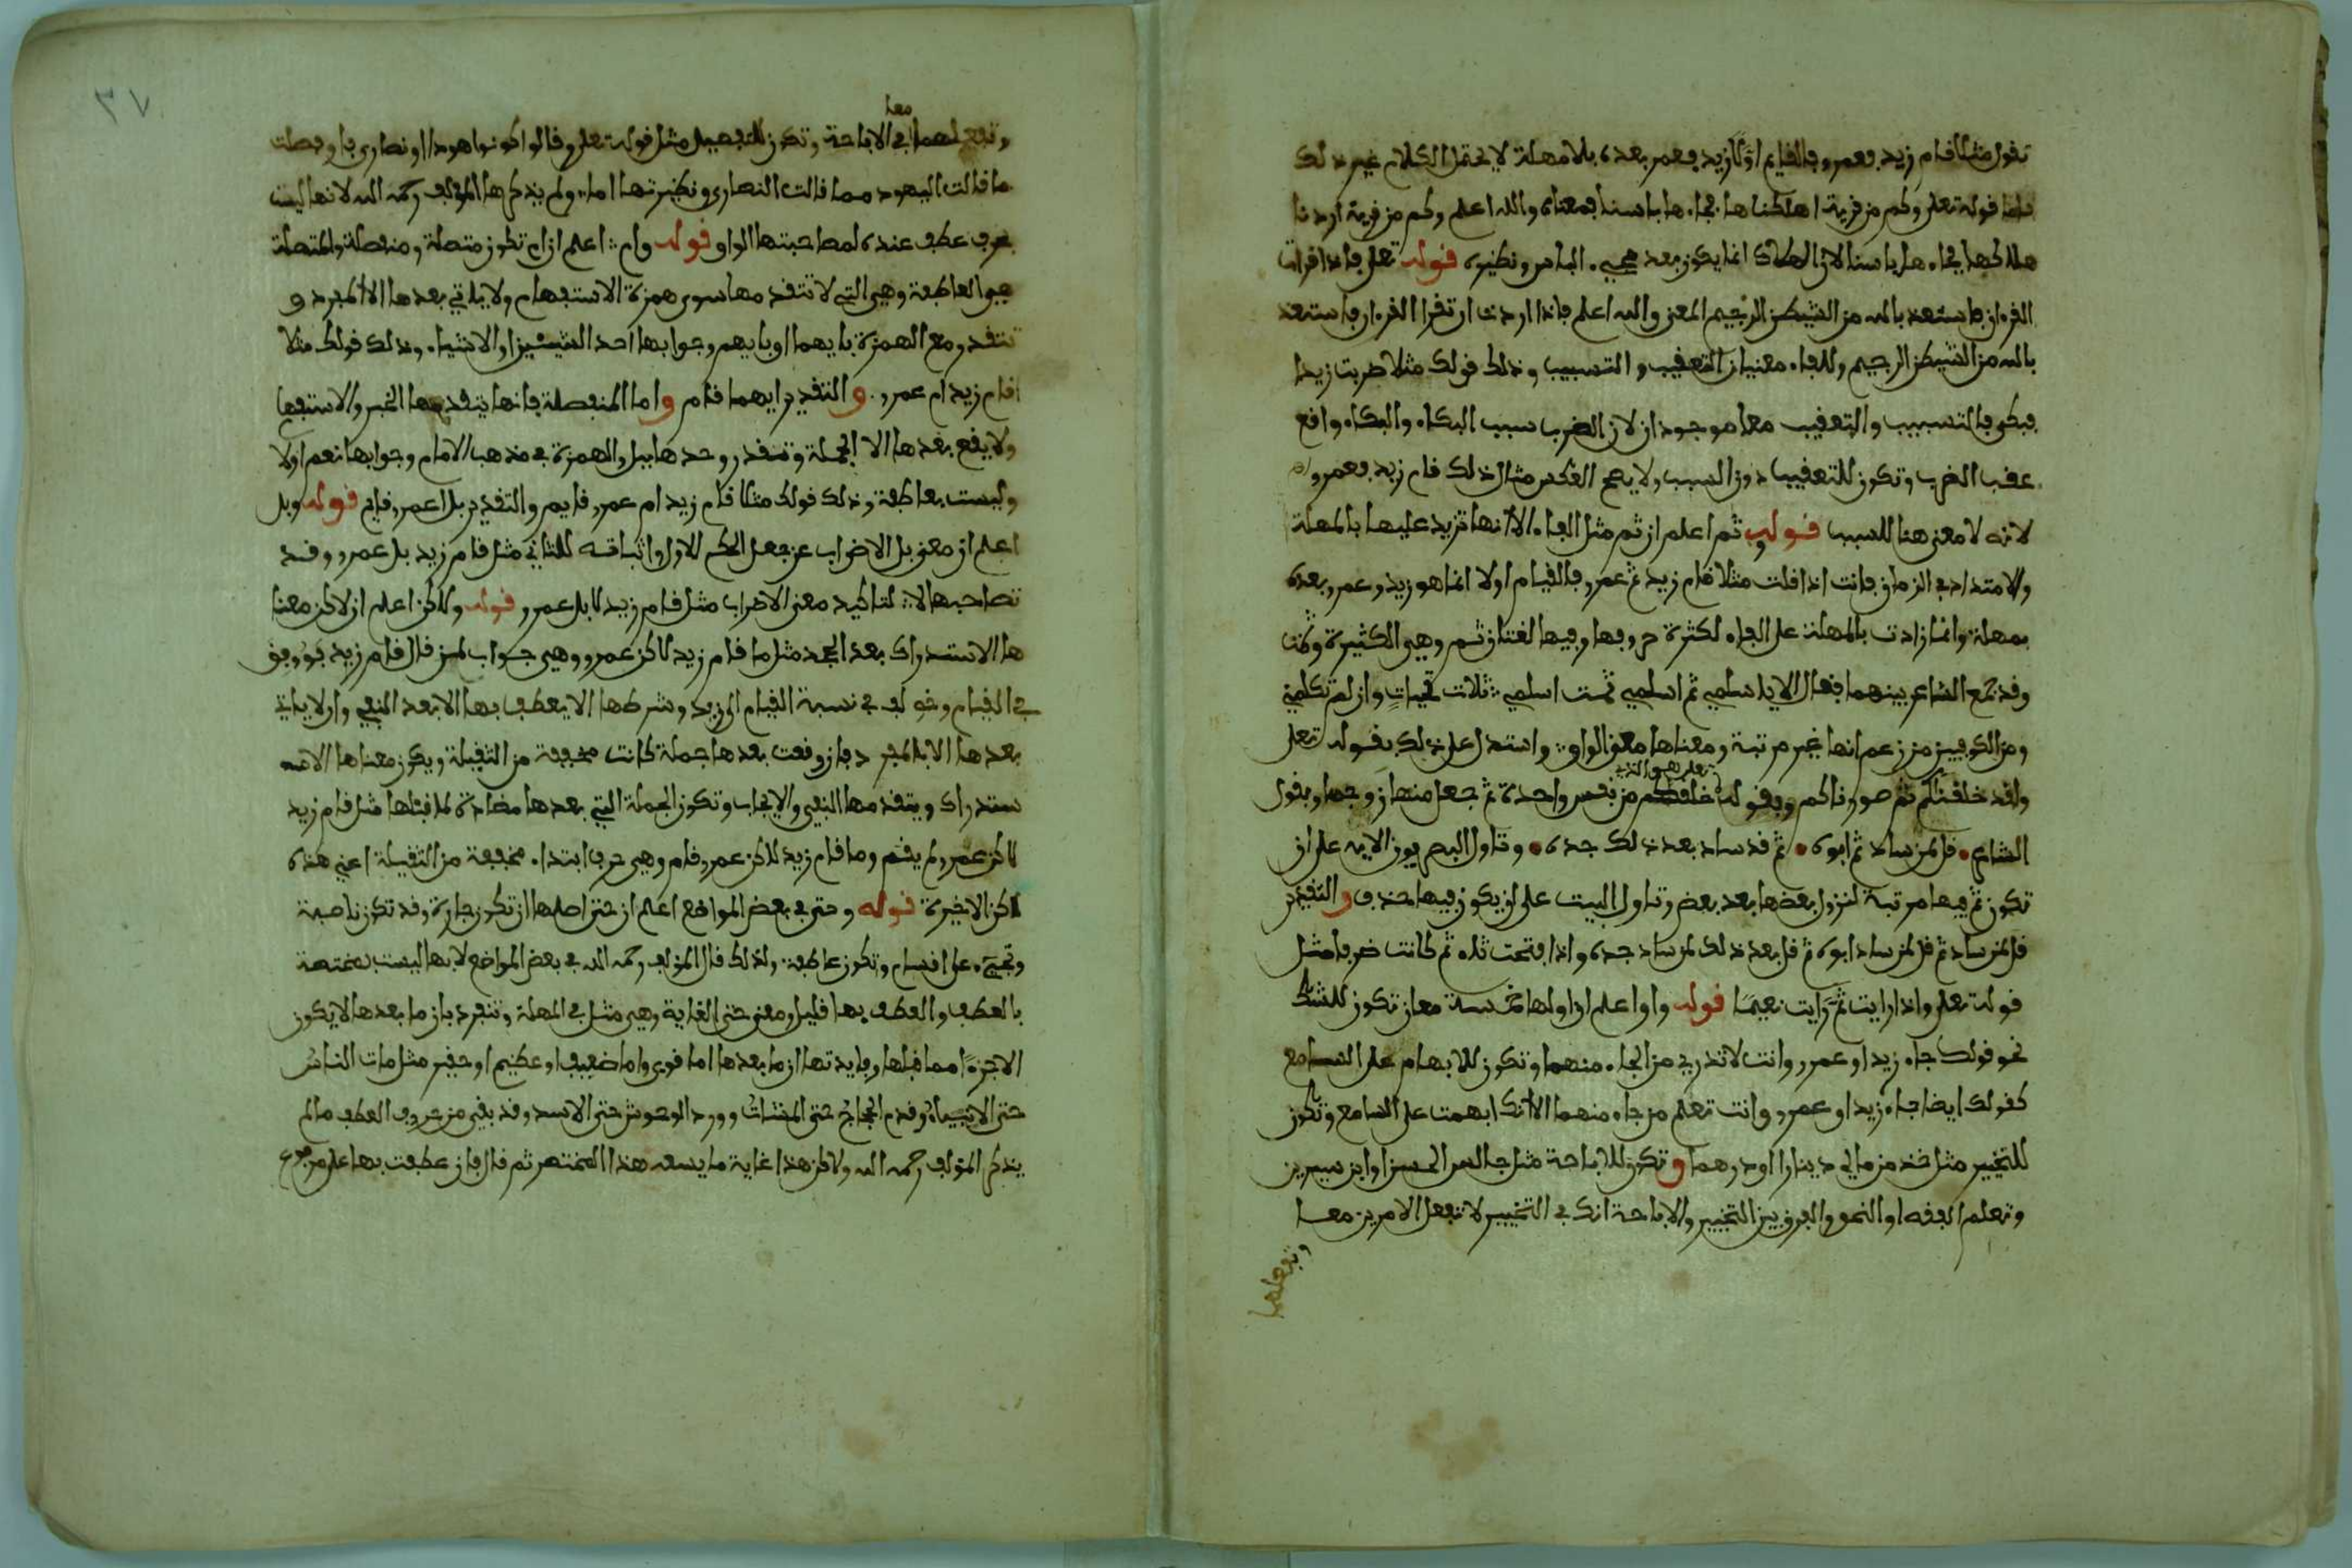 تقول مثلا قام زيد فعمرو فالقايم اولا زيد فعمر بعده بلا مهلة لا يحتمل الكلام غير ذلك
فاما قوله تعلى وكم من قرية اهلكناها فجاءها باسنا فمعناه والله اعلم وكم من قرية اردنا
هلاكها فجاءها باسنا لان الهلاك انما يكون بعد مجيء الباس ونظيره قوله تعلى فاذا قرات
القرءان فاستعذ بالله من الشيطن الرجيم المعنى والله اعلم فاذا اردت ان تقرا القرءان فاستعذ
بالله من الشيطن الرجيم وللفاء معنيان التعقيب والتسبيب وذلك قولك مثلا ضربت زيدا
فبكى فالتسبيب والتعقيب معا موجودان لان الضرب سبب البكاء والبكاء واقع
عقب الضرب وتكون للتعقيب دون السبب ولا يصح العكس مثال ذلك قام زيد فعمرو
لانه لا معنى هنا للسبب قوله وثم اعلم ان ثم مثل الفاء الا انها تزيد عليها بالمهلة
والامتداد في الزمان فانت اذا قلت مثلا قام زيد ثم عمرو فالقيام اولا انما هو زيد وعمرو بعده
بمهلة وانما زادت بالمهلة على الفاء لكثرة حروفها وفيها لغتان ثم وهي الكثيرة وثمت
وقد جمع الشاعر بينهما فقال الا يا سلمي ثم اسلمي ثمت اسلمي ثلاث تحيات وان لم تكلمي
ومن الكوفيين من زعم انها غير مرتبة ومعناها معنى الواو واستدل على ذلك بقوله تعلى
ولقد خلقنكم ثم صورناكم وبقوله تعلى هو الذي خلقكم من نفس واحدة ثم جعل منها زوجها وبقول
الشاعر قل لمن ساد ثم ابوه ثم قد ساد بعد ذلك جده وتاول البصريون الاية على ان
تكون ثم فيها مرتبة لنزول بعضها بعد بعض وتاول البيت على ان يكون فيها حذف والتقدير
قل لمن ساد ثم قل لمن ساد ابوه ثم قل بعد ذلك لمن ساد جده واذا فتحت ثاء ثم كانت ظرفا مثل
قوله تعلى واذا رايت ثم رايت نعيما قوله واو اعلم ان او لها خمسة معان تكون للشك
نحو قولك جاء زيد او عمرو وانت لا تدري من الجاء منهما وتكون للابهام على السامع
كقولك ايضا جاء زيد او عمرو وانت تعلم من جاء منهما الا انك ابهمت على السامع وتكون
للتخيير مثل خذ من مالي دينارا او درهما وتكون للاباحة مثل جالس الحسن او ابن سيرين
وتعلم الفقه او النحو والفرق بين التخيير والاباحة انك في التخيير لا تفعل الامرين معا
وتفعلهما
٣٧
وتفعلهما معا في الاباحة وتكون للتفصيل مثل قوله تعلى وقالوا كونوا هودا او نصارى فاو فصلت
ما قالت اليهود مما قالت النصارى ونظيرتها اما ولم يذكرها المؤلف رحمه الله لانها ليست
بحرف عطف عنده لمصاحبتها الواو قوله وام اعلم ان ام تكون متصلة ومنفصلة والمتصلة
هي العاطفة وهي التي لا تتقدمها سوى همزة الاستفهام ولا ياتي بعدها الا المفرد و
تتقدر مع الهمزة بايهما او بايهم وجوابها احد الشيئين او الاشياء وذلك قولك مثلا
اقام زيد ام عمرو والتقدير ايهما قام واما المنفصلة فانها يتقدمها الخبر والاستفها
ولا يقع بعدها الا الجملة وتتقدر وحدها ببل والهمزة في مذهب الامام وجوابها نعم او لا
وليست بعاطفة وذلك قولك مثلا قام زيد ام عمرو قايم والتقدير بل اعمرو قايم قوله وبل
اعلم ان معنى بل الاضراب عن جعل الحكم للاول واثباته للثاني مثل قام زيد بل عمرو وقد
تصاحبها لا لتاكيد معنى الاضراب مثل قام زيد لا بل عمرو قوله ولاكن اعلم ان لاكن معنا
ها الاستدراك بعد الجحد مثل ما قام زيد لاكن عمرو وهي جواب لمن قال قام زيد فووفق
في القيام وخولف في نسبة القيام الى زيد وشرطها الا يعطف بها الا بعد النفي وان لا ياتي
بعدها الا بالمفرد فان وقعت بعدها جملة كانت مخففة من الثقيلة ويكون معناها الا
ستدراك ويتقدمها النفي والايجاب وتكون الجملة التي بعدها مضادة لما قبلها مثل قام زيد
لاكن عمرو لم يقم وما قام زيد لاكن عمرو قام وهي حرف ابتداء مخففة من الثقيلة اعني هذه
لاكن الاخيرة قوله وحتى في بعض المواضع اعلم ان حتى اصلها ان تكون جارة وقد تكون ناصبة
وتجيء على اقسام وتكون عاطفة ولذلك قال المؤلف رحمه الله في بعض المواضع لانها ليست بمختصة
بالعطف والعطف بها قليل ومعنى حتى الغاية وهي مثل ثم في المهلة وتنفرد بان ما بعدها لا يكون
الا جزءا مما قبلها وفايدتها ان ما بعدها اما قوي واما ضعيف او عظيم او حقير مثل مات الناس
حتى الانبياء وقدم الحجاج حتى المشاة وورد الوحوش حتى الاسد وقد بقي من حروف العطف ما لم
يذكر المؤلف رحمه الله ولاكن هذا غاية ما يسعه هذا المختصر ثم قال فان عطفت بها على مرفوع